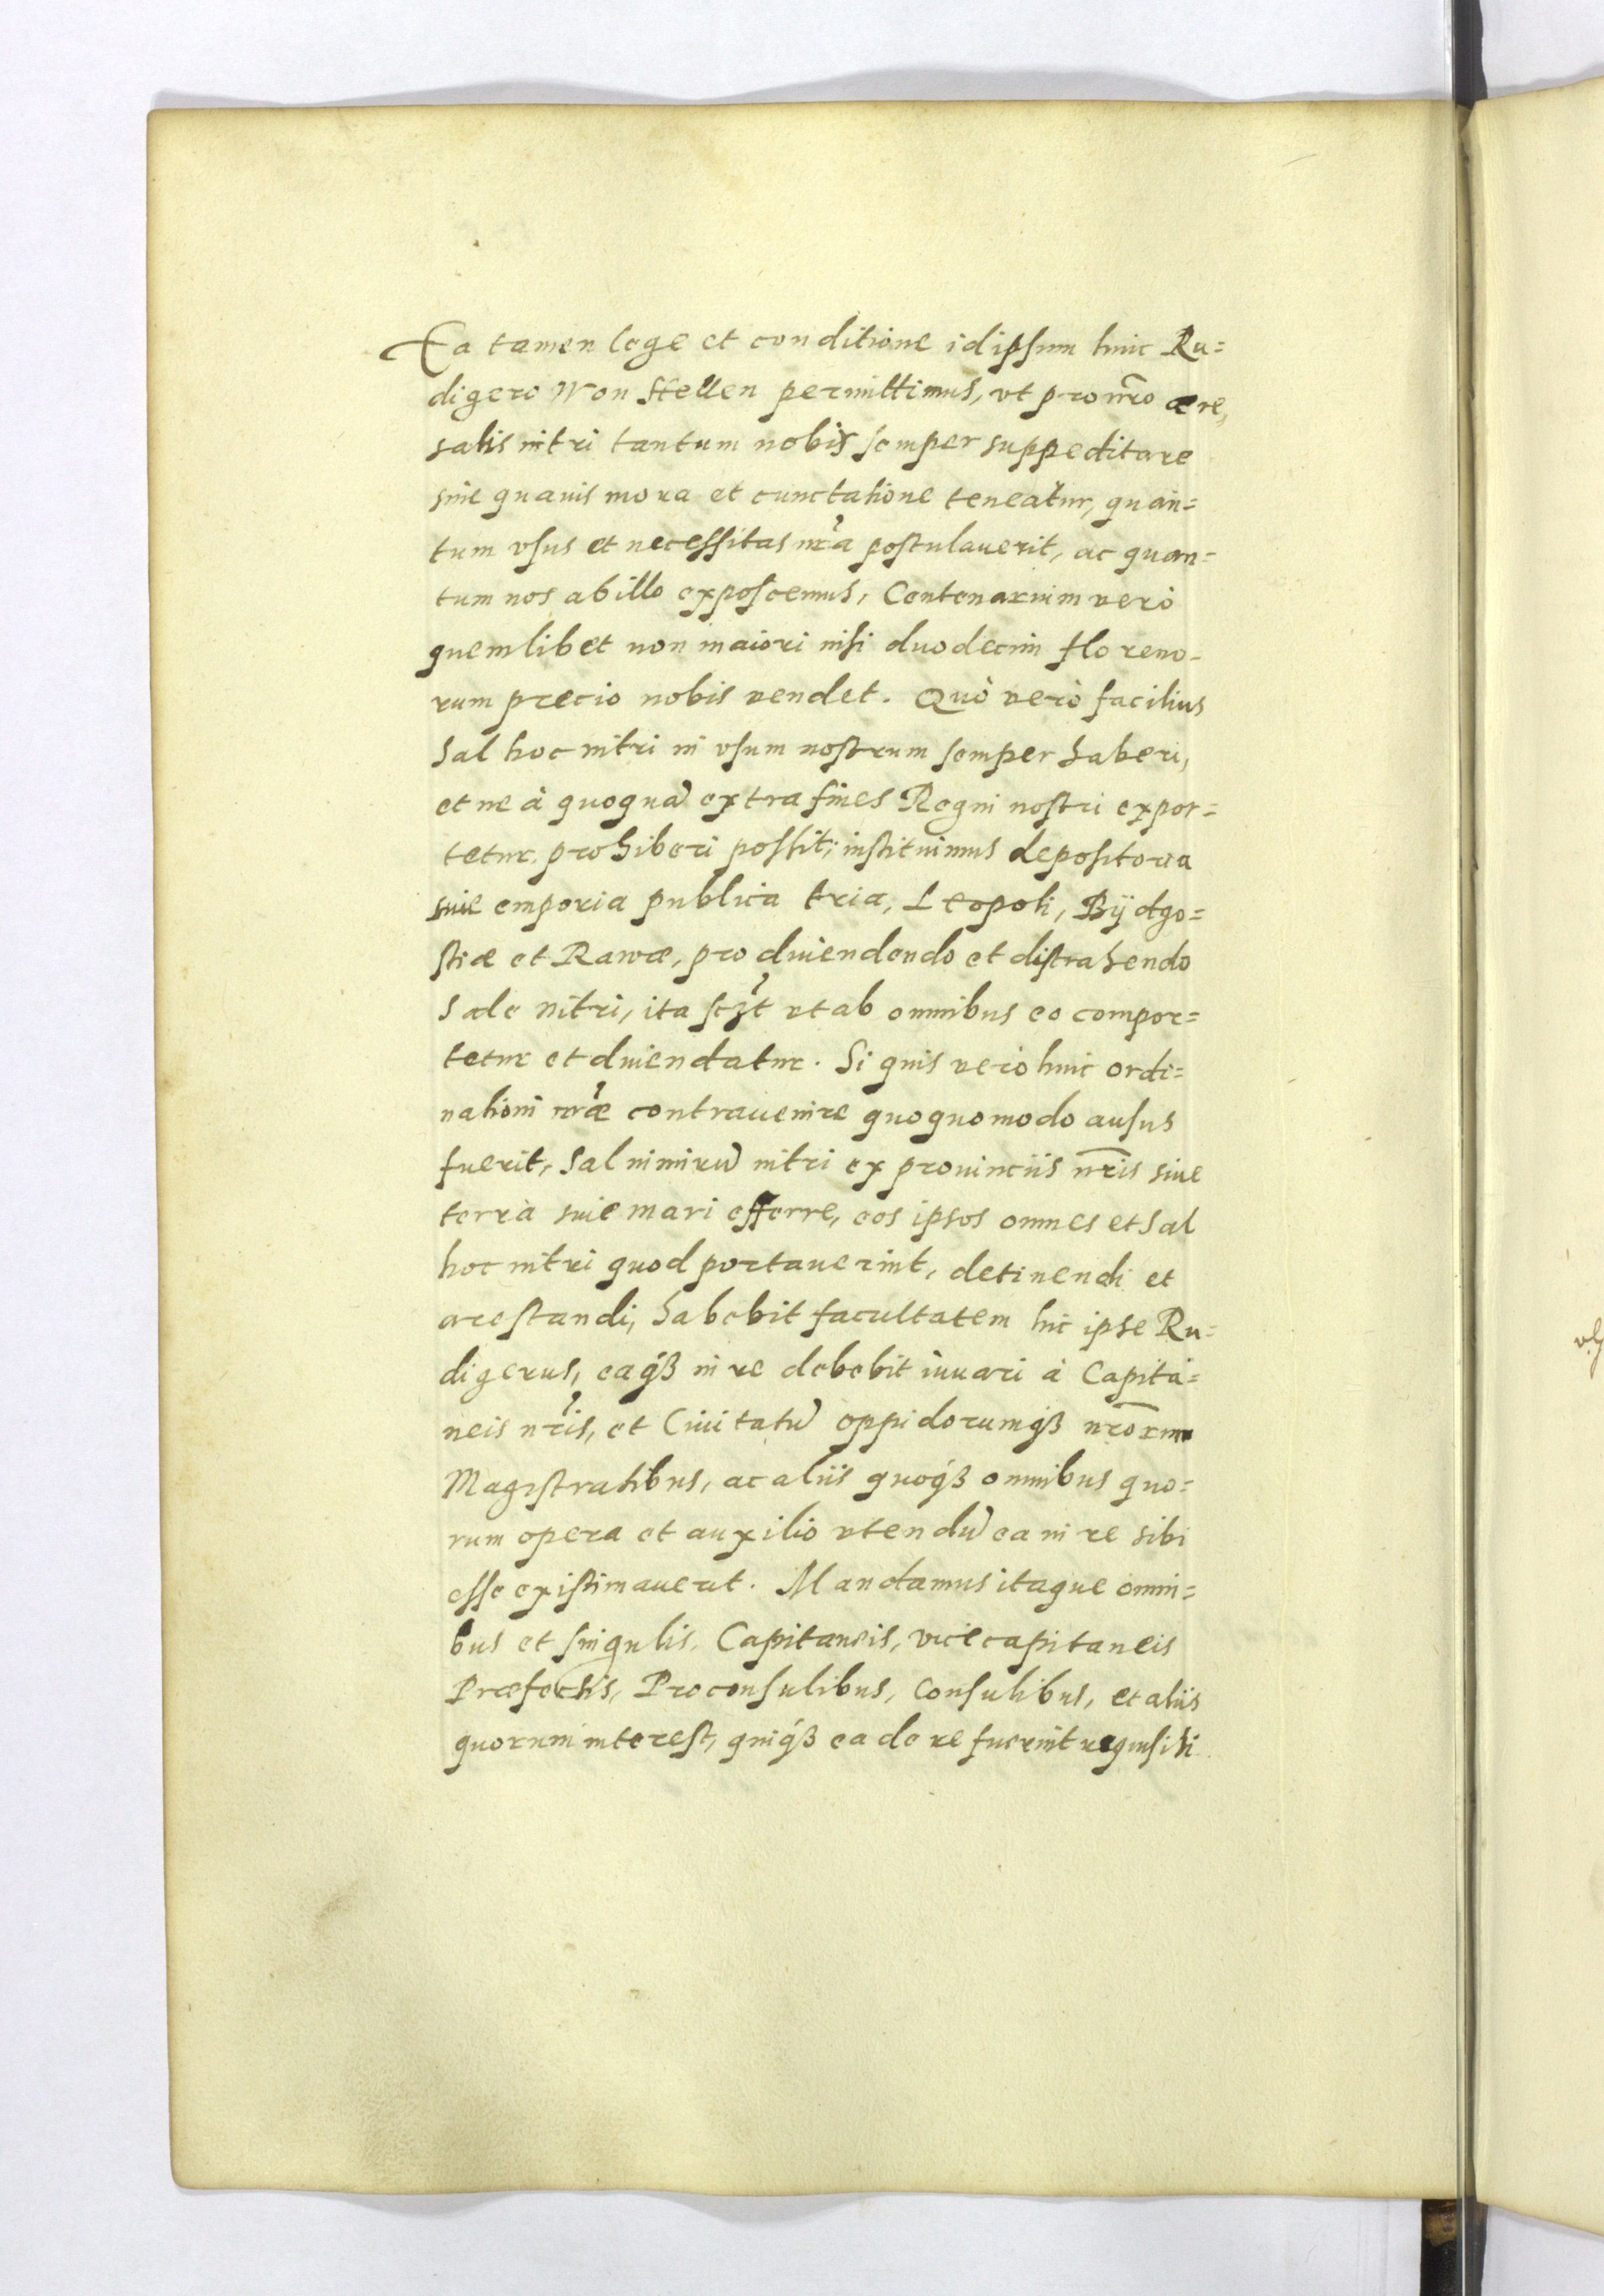 Ea tamen lege et conditione idipsum huic Ru=
digero Won Stellen permittimus, vt pro nr̃o ære,
salis nitri tantum nobis semper suppeditare
sine quauis mora et cunctatione teneatur, quan=
tum vsus et necessitas nr̃a postulauerit, ac quan=
tum nos ab illo exposcemus, Centenarium verò
quemlibet non maiori nisi duodecim floreno-
rum precio nobis vendet. Quò verò facilius
Sal hoc nitri in vsum nostrum semper haberi,
et ne à quoquã extra fines Regni nostri expor=
tetur, prohiberi possit; instituimus depositoria
siue emporia publica tria, Leopoli, Bÿdgo=
stiæ et Rawæ, pro diuendendo et distrahendo
Sale nitri, ita sczt vt ab omnibus eo compor=
tetur et diuendatur. Si quis verò huic ordi=
nationi nr̃æ contrauenire quoquomodo ausus
fuerit, Sal nimirũ nitri ex prouinciis nr̃is siue
terrà siue mari efferre, eos ipsos omnes et Sal
hoc nitri quod portauerint, detinendi et
arestandi, habebit facultatem hic ipse Ru=
digerus, eaqꝫ in re debebit iuuari à Capita=
neis nr̃is, et Ciuitatũ oppidorumqꝫ nr̃orum
Magistratibus, ac aliis quoqꝫ omnibus quo=
rum opera et auxilio vtendũ ea in re sibi
esse existimauerit. Mandamus itaque omni=
bus et singulis, Capitaneis, vicecapitaneis
Præfectis, Proconsulibus, Consulibus, et aliis
quorum interest, quiqꝫ ea de re fuerint requisiti